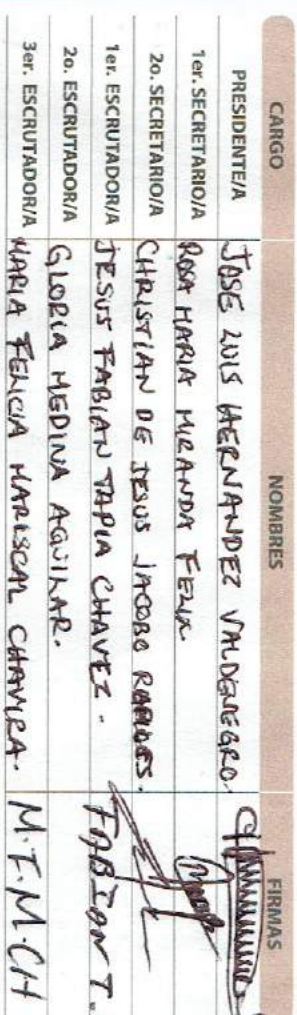 CARGO NOMBRES FIRMAS
PRESIDENTE/A JOSE LUIS HERNANDEZ VALDENEGRO.
1er. SECRETARIO/A ROSA MARIA MIRANDA FELIX
2o. SECRETARIO/A CHRISTIAN DE JESUS JACOBO
1er. ESCRUTADOR/A JESUS FABIAN TAPIA CHAVEZ. FABIAN T.
2o. ESCRUTADOR/A GLORIA MEDINA AGUILAR.
3er. ESCRUTADOR/A MARIA FELICIA MARISCAL CHAVIRA. M.F.M.CH